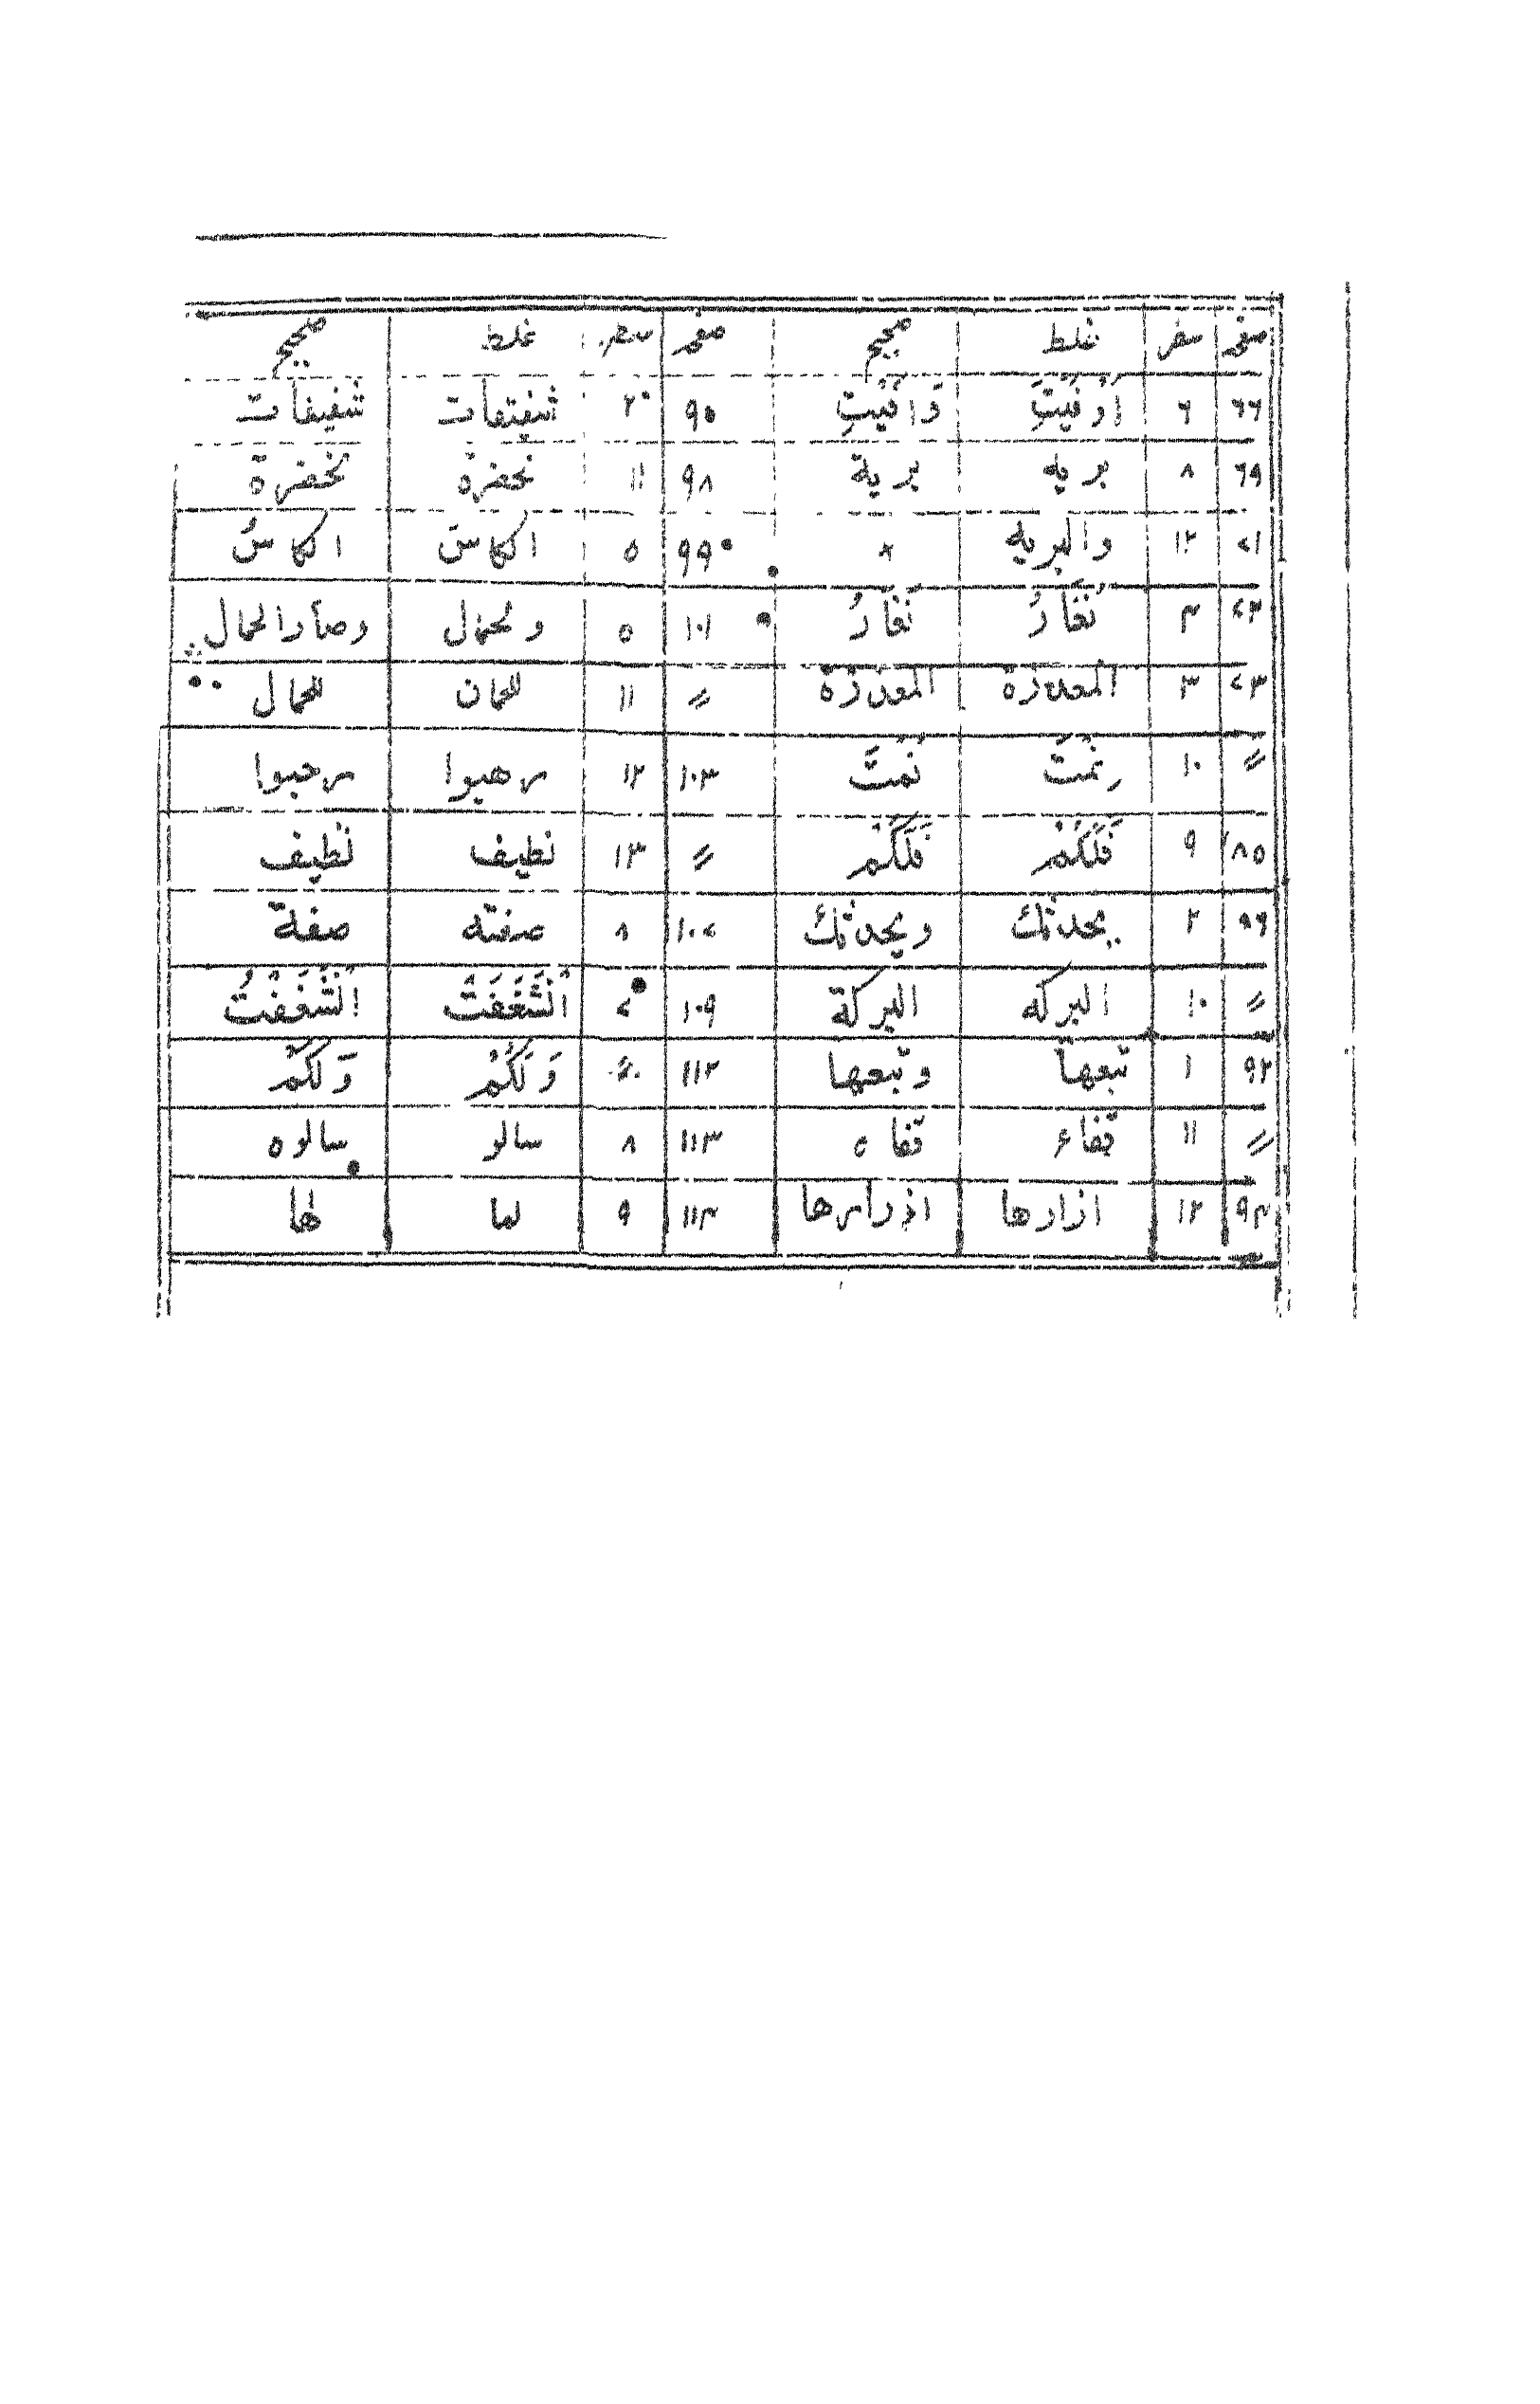 صفحه سطر غلط صحيح صفحه سطر غلط صحيح
٦٦ ٦ اَوْفَيْتَ وَافَيْتِ ٩٥ ٢٠ شفيتقات شفيفات
٦٩ ٨ بريه برية ٩٨ ١١ نحضرة نخضرة
٧١ ١٢ والبريه × ٩٩ ٥ الكاسَ الكاسُ
٧٣ ٤ نُقَارُ نُقارُ ١٠١ ٥ و محتمل وصار الحمال
٧٣ ٣ المعذرة المعذرة 〃 ١١ للحمان للحمال
〃 ١٠ نمتَ نُمتَّ ١٠٣ ١٢ رهبوا رحبوا
٨٥ ٩ فَلَكُمْ فَلَكُمْ 〃 ١٣ نطيف نُطيف
٨٦ ٢ يحدثك ويحدثك ١٠٧ ٨ صفته صفة
〃 ١٠ البركه البركة ١٠٩ ٧ انْشَغَفَتْ انْشَغَفْتُ
٩٢ ١ تبعها وتبعها ١١٢ 〃 وَلَكُمْ وَلكُمْ
〃 ١١ قفاء قفاه ١١٣ ٨ سالو سالوه
٩٤ ١٢ ازارها اذرارها ١١٤ ٩ لها